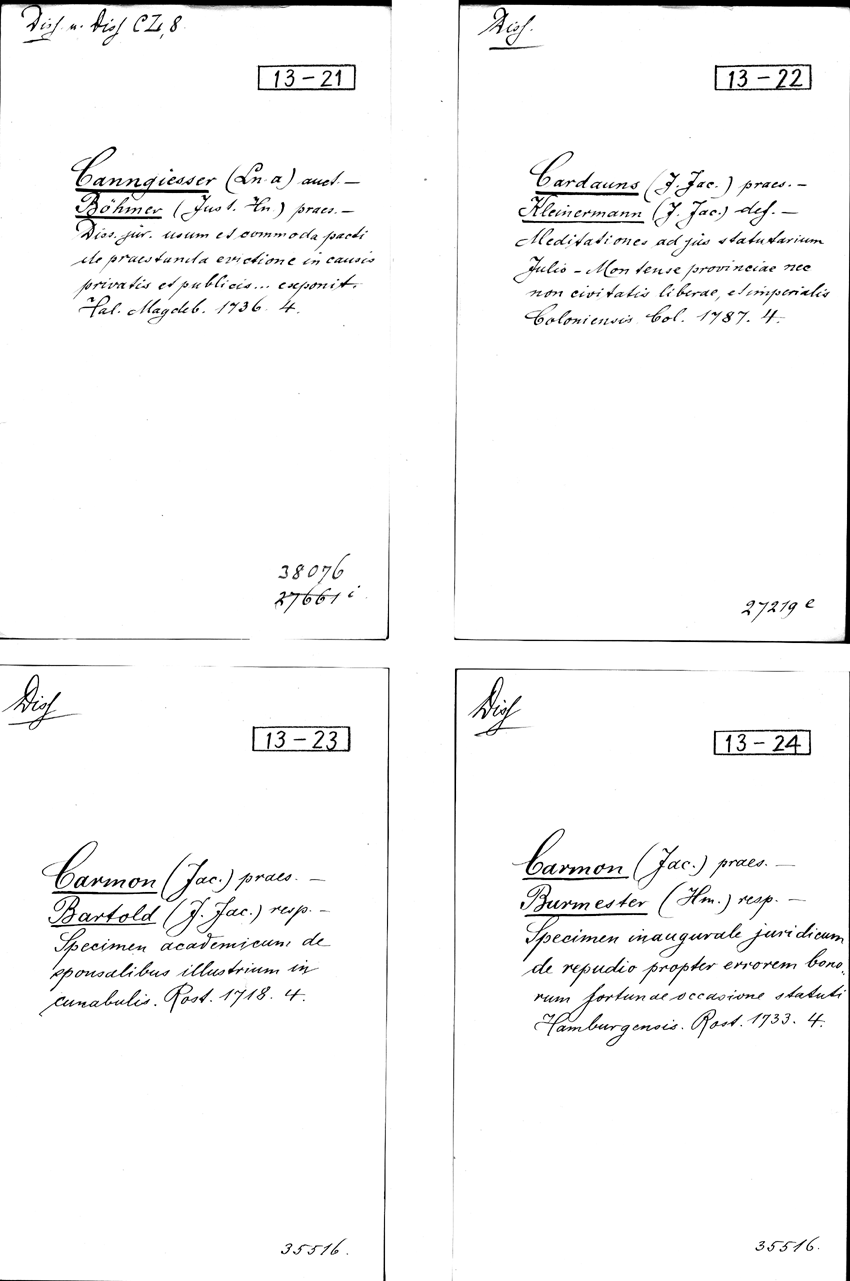 Diss. u. Diss CZ, 8.
13-21
Canngiesser (Ln. a) auct. —
Böhmer (Just. Hn.) praes. —
Diss. jur. usum et commoda pacti
de praestanda evictione in causis
privatis et publicis... exponit.
Hal. Magdeb. 1736. 4.
38076
27661 i
Diss.
13-22
Cardauns (J. Jac.) praes. —
Kleinermann (J. Jac.) def. —
Meditationes ad jus statutarium
Julio-Montense provinciae nec
non civitatis liberae, et imperialis
Coloniensis. Col. 1787. 4.
27219 e
Diss
13-23
Carmon (Jac.) praes. —
Bartold (J. Jac.) resp. —
Specimen academicum de
sponsalibus illustrium in
cunabulis. Rost. 1718. 4.
35516.
Diss
13-24
Carmon (Jac.) praes. —
Burmester (Hm.) resp. —
Specimen inaugurale juridicum
de repudio propter errorem bono-
rum fortunae occasione statuti
Hamburgensis. Rost. 1733. 4.
35516.